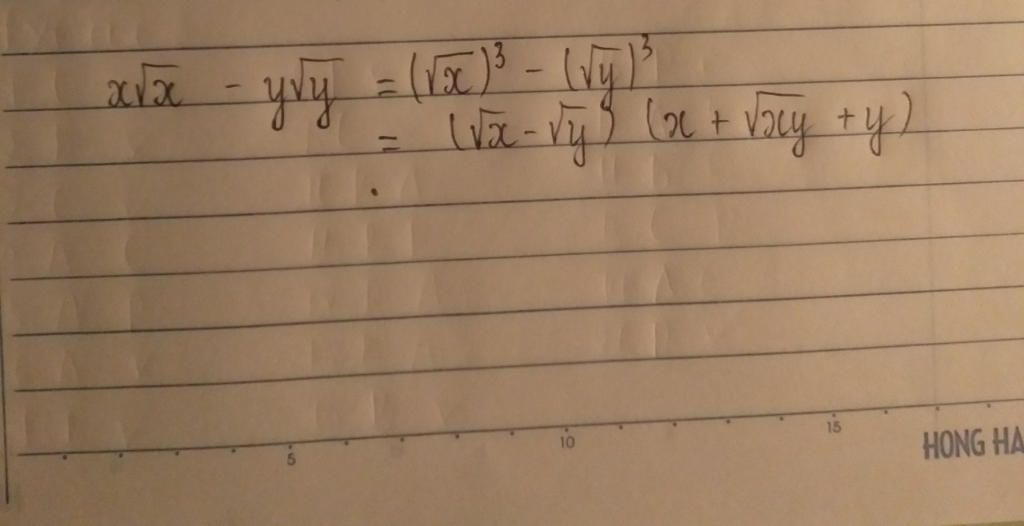 x√x - y√y = (√x)³ - (√y)³
= (√x - √y) (x + √xy + y)
5 10 15
HONG HA